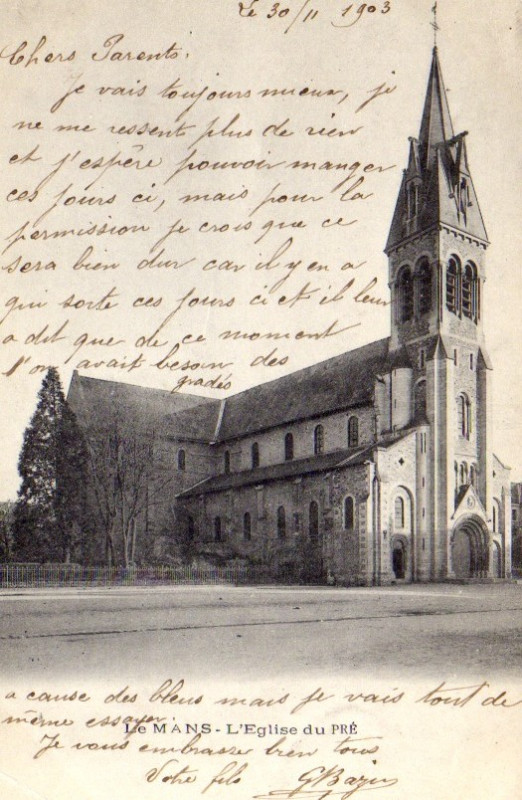 Le 30/11 1903
Chers Parents,
Je vais toujours mieux, je
ne me ressent plus de rien
et j'espère pouvoir manger
ces jours ci, mais pour la
permission je crois que ce
sera bien dur car il y en a
qui sorte ces jours ci et il leur
a dit que de ce moment
l'on avait besoin des
gradés
a cause des bleus mais je vais tout de
même essayer.
Le MANS - L'Eglise du PRÉ
Je vous embrasse bien tous
Votre fils G Bazin